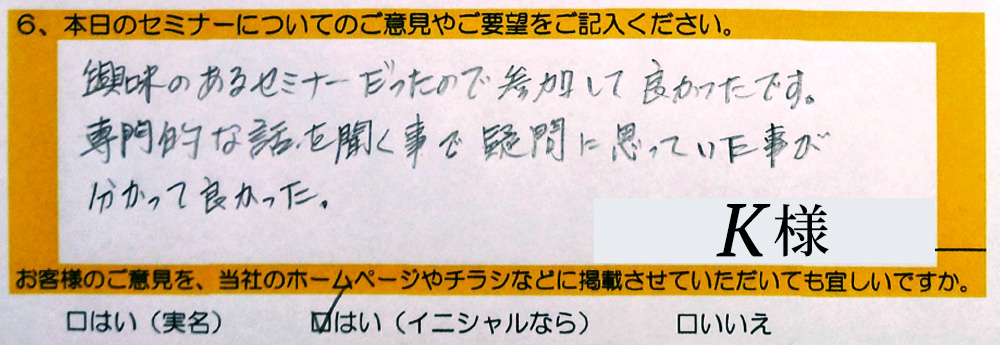 6、本日のセミナーについてのご意見やご要望をご記入ください。
興味のあるセミナーだったので参加して良かったです。
専門的な話を聞く事で疑問に思っていた事が
分かって良かった。
K様
お客様のご意見を、当社のホームページやチラシなどに掲載させていただいても宜しいですか。
□はい（実名） ☑はい（イニシャルなら） □いいえ